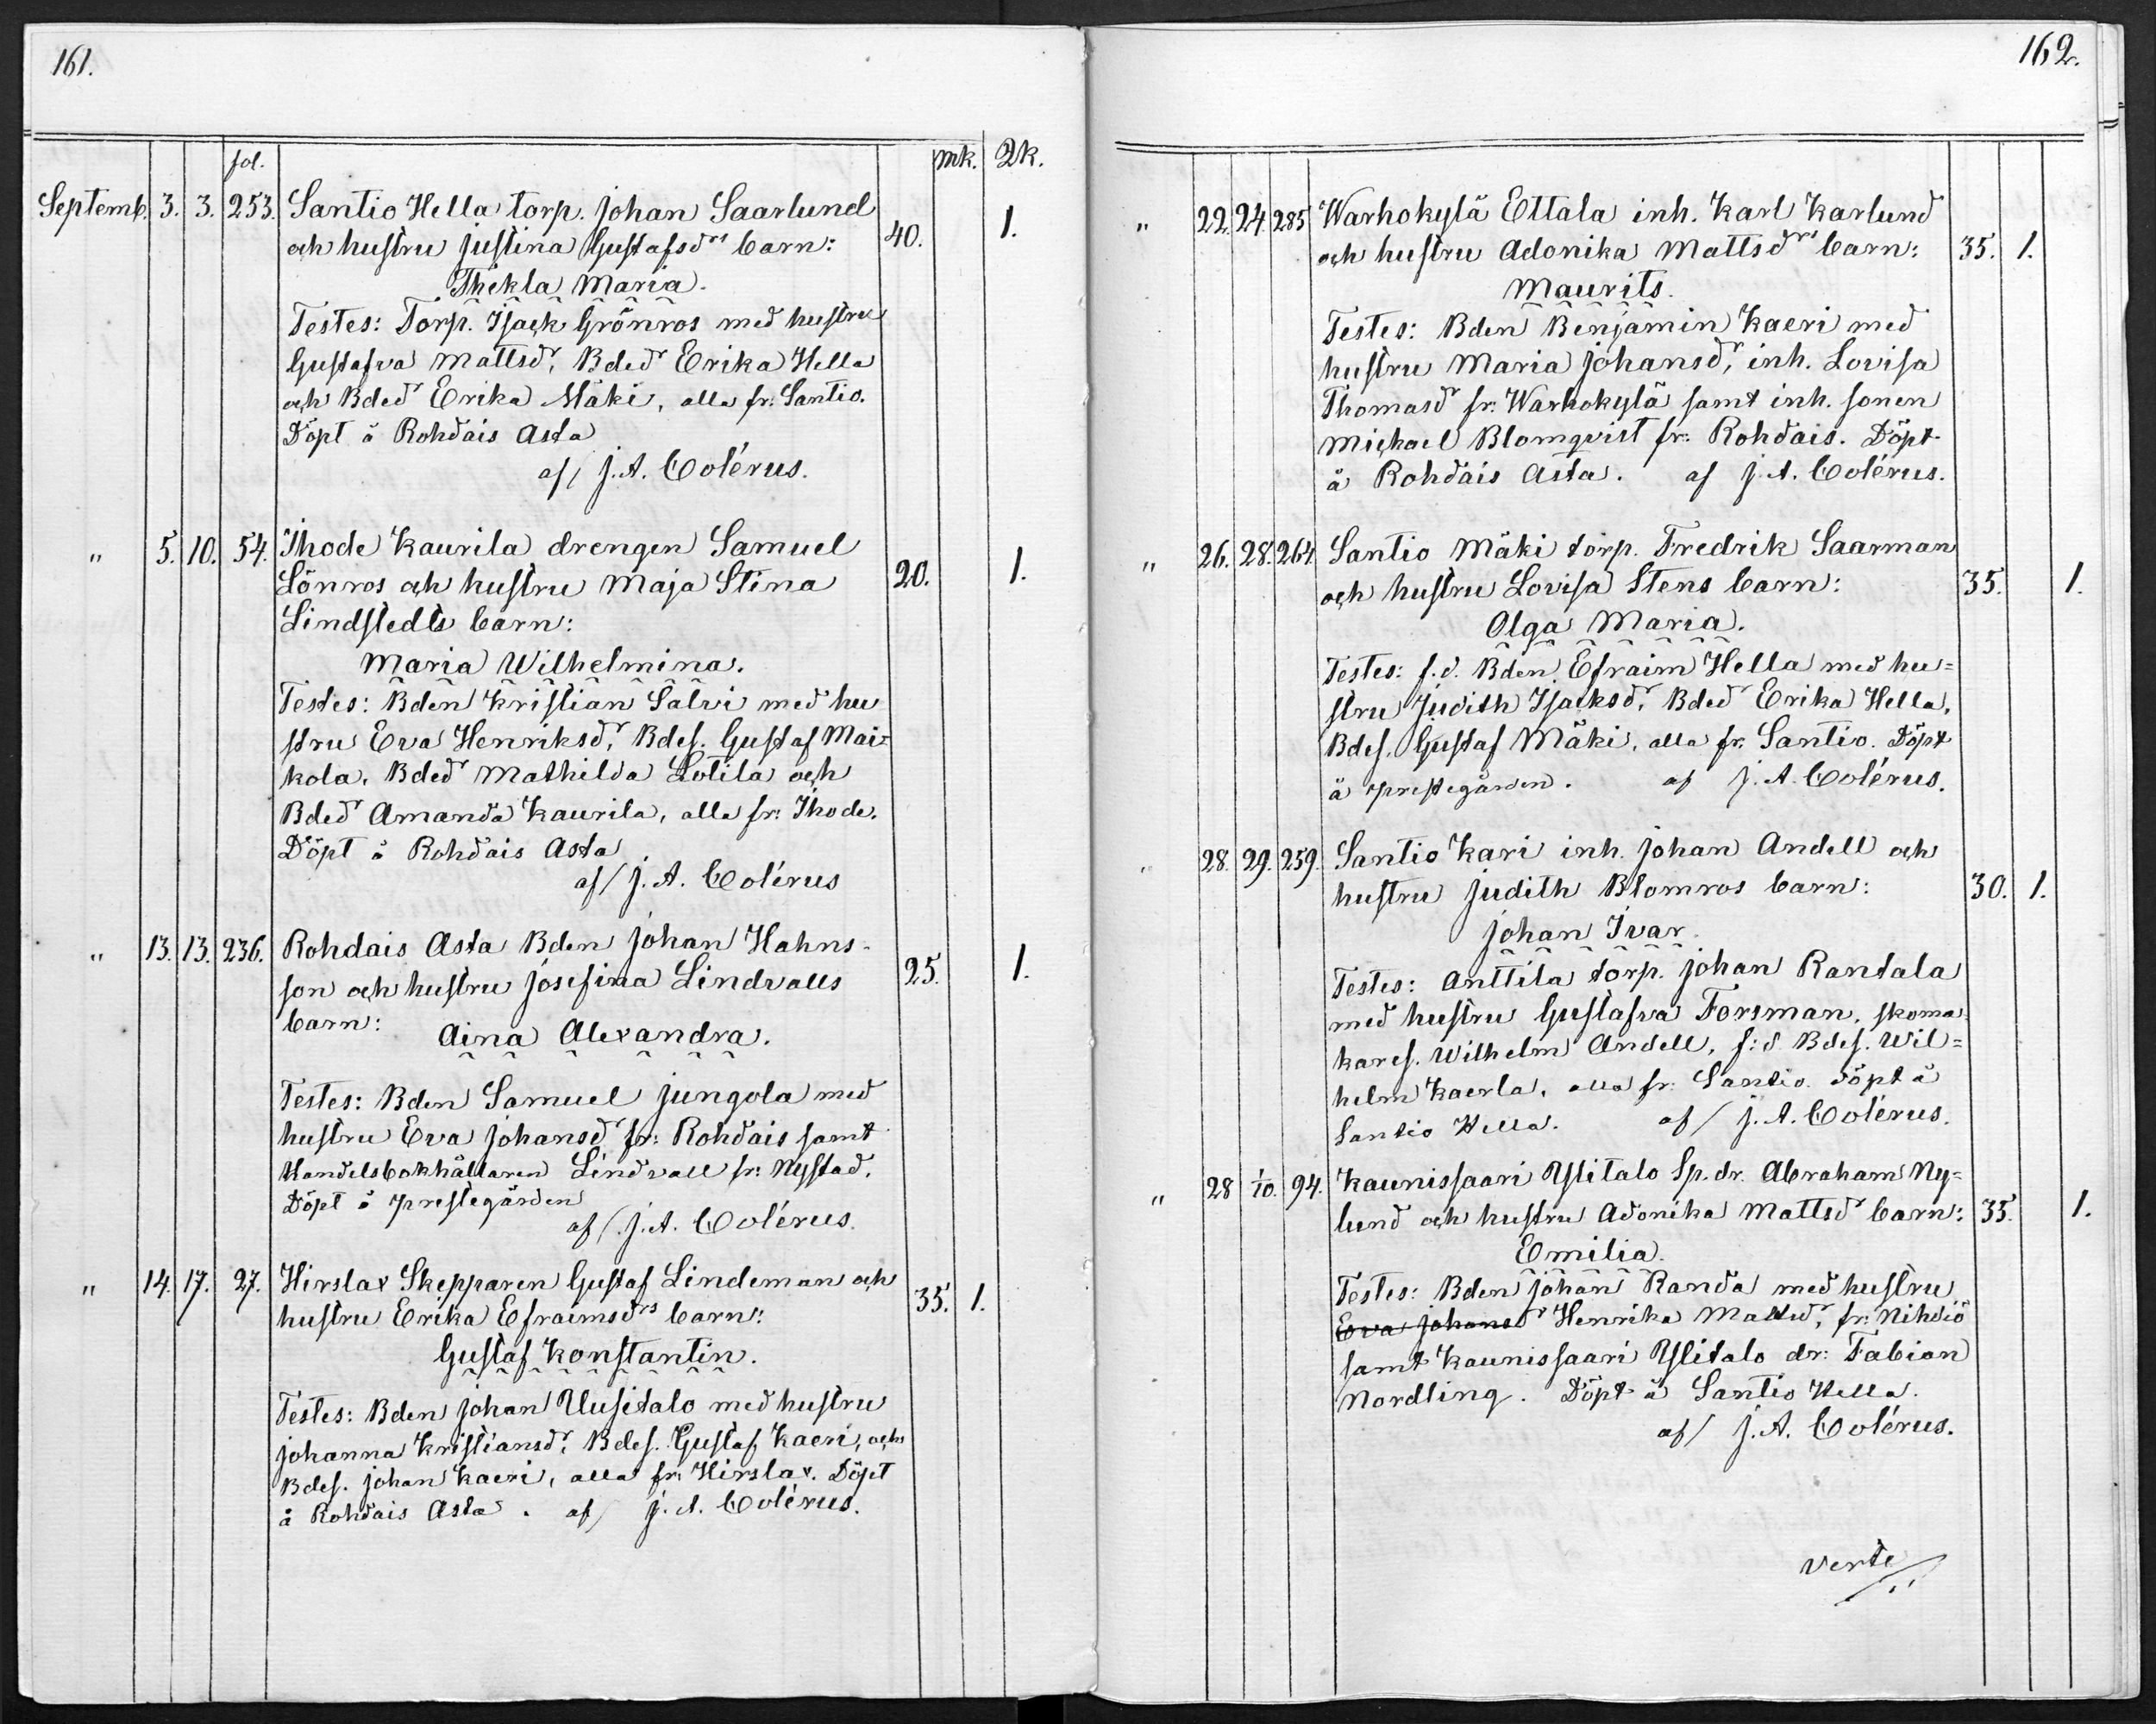 161.
fol. mk. 2k.
Septemb. 3. 3. 253. Santio Hella torp. Johan Saarlund
och hustru Justina Gustafsdrs barn: 40. 1.
Thekla Maria.
Testes: Torp. Isack Grönros med hustru
Gustafva Mattsdr, Bded Erika Hella
och Bdedr Erika Mäki, alla fr. Santio.
Döpt å Rohdais Asta
af/ J. A. Colérus.
" 5. 10. 54. Ihode Kaurila drengen Samuel
Lönros och hustru Maja Stina 20. 1.
Lindstedts barn:
Maria Wilhelmina.
Testes: Bden Kristian Salvi med hu
stru Eva Henriksdr, Bdes. Gustaf Mai=
kola, Bdedr Mathilda Lotila och
Bdedr Amanda Kaurila, alla fr: Ihode.
Döpt å Rohdais Asta
af/ J. A. Colérus
" 13. 13. 236. Rohdais Asta Bden Johan Hahns-
son och hustru Josefina Lindvalls 25. 1.
barn: Aina Alexandra.
Testes: Bden Samuel Jungola med
hustru Eva Johansdr fr: Rohdais samt
Handelsbokhållaren Lindvall fr: Nystad.
Döpt å prestegården
af/ J. A. Colérus.
" 14. 17. 27. Hirslax Skepparen Gustaf Lindeman och
hustru Erika Efraimsdrs barn: 35. 1.
Gustaf Konstantin.
Testes: Bden Johan Uusitalo med hustru
Johanna Kristiansdr, Bdes. Gustaf Kaeri, och
Bdes. Johan Kaeri, alla fr: Hirslax. Döpt
å Rohdais Asta. af/ J. A. Colérus.
162.
" 22. 24. 285 Warhokylä Ettala inh. Karl Karlund
och hustru Adonika Mattsdrs barn: 35. 1.
Maurits.
Testes: Bden Benjamin Kaeri med
hustru Maria Johansdr, inh. Lovisa
Thomasdr fr: Warhokylä samt inh. sonen
Michael Blomqvist fr: Rohdais. Döpt
å Rohdais Asta. af J. A. Colérus.
" 26. 28. 264. Santio Mäki torp. Fredrik Saarman
och hustru Lovisa Stens barn: 35. 1.
Olga Maria.
Testes: f.d. Bden Efraim Hella med hu=
stru Judith Isacksdr, Bdedr Erika Hella,
Bdes. Gustaf Mäki, alla fr. Santio. Döpt
å prestegården. af J. A. Colérus.
" 28. 29. 259. Santio Kari inh. Johan Andell och
hustru Judith Blomros barn: 30. 1.
Johan Ivar.
Testes: Anttila torp. Johan Rantala
med hustru Gustafva Forsman, skoma
kares. Wilhelm Andell, f:d Bdes. Wil=
helm Kaerla, alla fr. Santio. Döpt å
Santio Hella. af/ J. A. Colérus.
" 28 1/10. 94. Kaunissaari Ylitalo Sp. dr. Abraham Ny=
lund och hustru Adonika Mattsdr barn: 35. 1.
Emilia.
Testes: Bden Johan Randa med hustru
Eva Johansdr Henrika Mattsdr, fr: Nihdiö
samt Kaunissaari Ylitalo dr: Fabian
Nordling. Döpt å Santio Hella.
af/ J. A. Colérus.
Verte